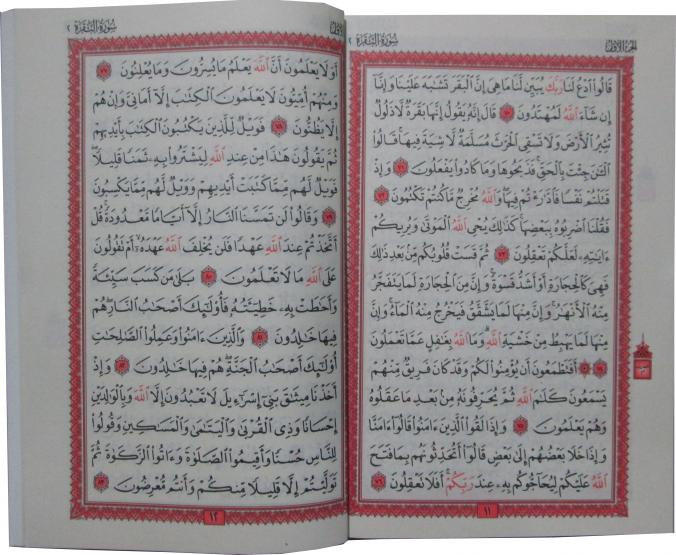 الجزء الأول
سورة البقرة ٢
قالوا ادع لنا ربك يبين لنا ما هي إن البقر تشبه علينا وإنا
إن شاء الله لمهتدون ٧٠ قال إنه يقول إنها بقرة لا ذلول
تثير الأرض ولا تسقي الحرث مسلمة لا شية فيها قالوا
الـٰٔن جئت بالحق فذبحوها وما كادوا يفعلون ٧١ وإذ
قتلتم نفسا فادٰرٰٔتم فيها والله مخرج ما كنتم تكتمون ٧٢
فقلنا اضربوه ببعضها كذٰلك يحي الله الموتىٰ ويريكم
ءايٰته لعلكم تعقلون ٧٣ ثم قست قلوبكم من بعد ذٰلك
فهي كالحجارة أو أشد قسوة وإن من الحجارة لما يتفجر
منه الأنهٰر وإن منها لما يشقق فيخرج منه الماء وإن
منها لما يهبط من خشية الله وما الله بغٰفل عما تعملون
٧٤ أفتطمعون أن يؤمنوا لكم وقد كان فريق منهم
يسمعون كلٰم الله ثم يحرفونه من بعد ما عقلوه
وهم يعلمون ٧٥ وإذا لقوا الذين ءامنوا قالوا ءامنا
وإذا خلا بعضهم إلىٰ بعض قالوا أتحدثونهم بما فتح
الله عليكم ليحاجوكم به عند ربكم أفلا تعقلون ٧٦
١١
الجزء الأول
سورة البقرة ٢
أولا يعلمون أن الله يعلم ما يسرون وما يعلنون ٧٧
ومنهم أميون لا يعلمون الكتٰب إلا أماني وإن هم
إلا يظنون ٧٨ فويل للذين يكتبون الكتٰب بأيديهم
ثم يقولون هٰذا من عند الله ليشتروا به ثمنا قليلا
فويل لهم مما كتبت أيديهم وويل لهم مما يكسبون
٧٩ وقالوا لن تمسنا النار إلا أياما معدودة قل
أتخذتم عند الله عهدا فلن يخلف الله عهده أم تقولون
على الله ما لا تعلمون ٨٠ بلىٰ من كسب سيئة
وأحٰطت به خطيـٔته فأولٰئك أصحٰب النار هم
فيها خٰلدون ٨١ والذين ءامنوا وعملوا الصٰلحٰت
أولٰئك أصحٰب الجنة هم فيها خٰلدون ٨٢ وإذ
أخذنا ميثٰق بني إسرٰءيل لا تعبدون إلا الله وبالوٰلدين
إحسانا وذي القربىٰ واليتٰمىٰ والمسٰكين وقولوا
للناس حسنا وأقيموا الصلوٰة وءاتوا الزكوٰة ثم
توليتم إلا قليلا منكم وأنتم معرضون ٨٣
١٢